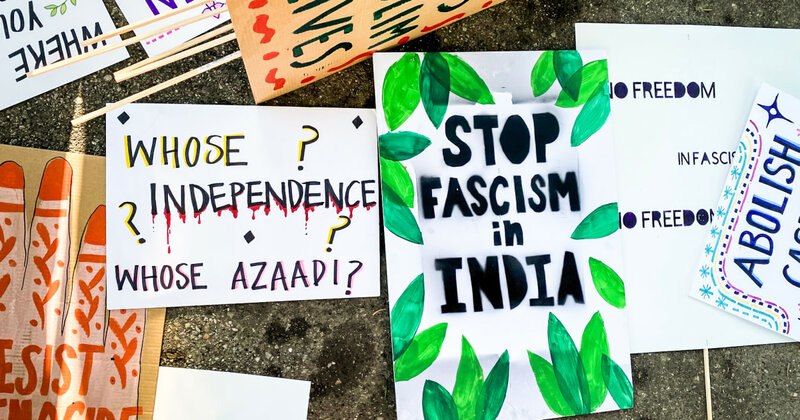 WHERE
YOU
LIVES
WHOSE ?
? INDEPENDENCE
?
WHOSE AZAADI?
STOP
FASCISM
in
INDIA
NO FREEDOM
IN FASCIS
NO FREEDO
ABOLISH
CAS
ESIST
ENOCIDE